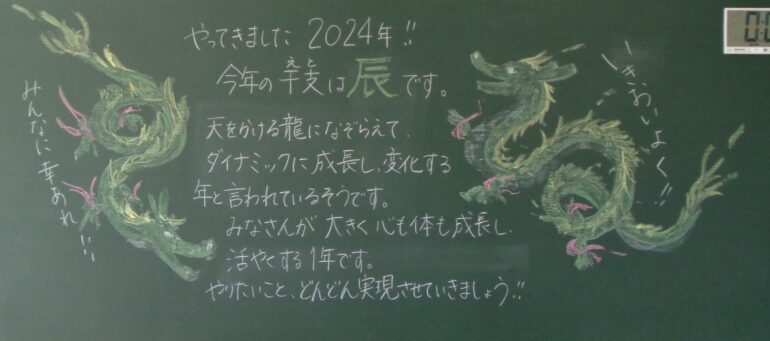 やってきました 2024年!!
今年の干支は辰です。
えと
天をかける龍になぞらえて、
ダイナミックに成長し、変化する
年と言われているそうです。
みなさんが 大きく 心も体も成長し、
活やくする1年です。
やりたいこと、どんどん実現させていきましょう!!
みんなに幸あれ!!
いきおいよく!!